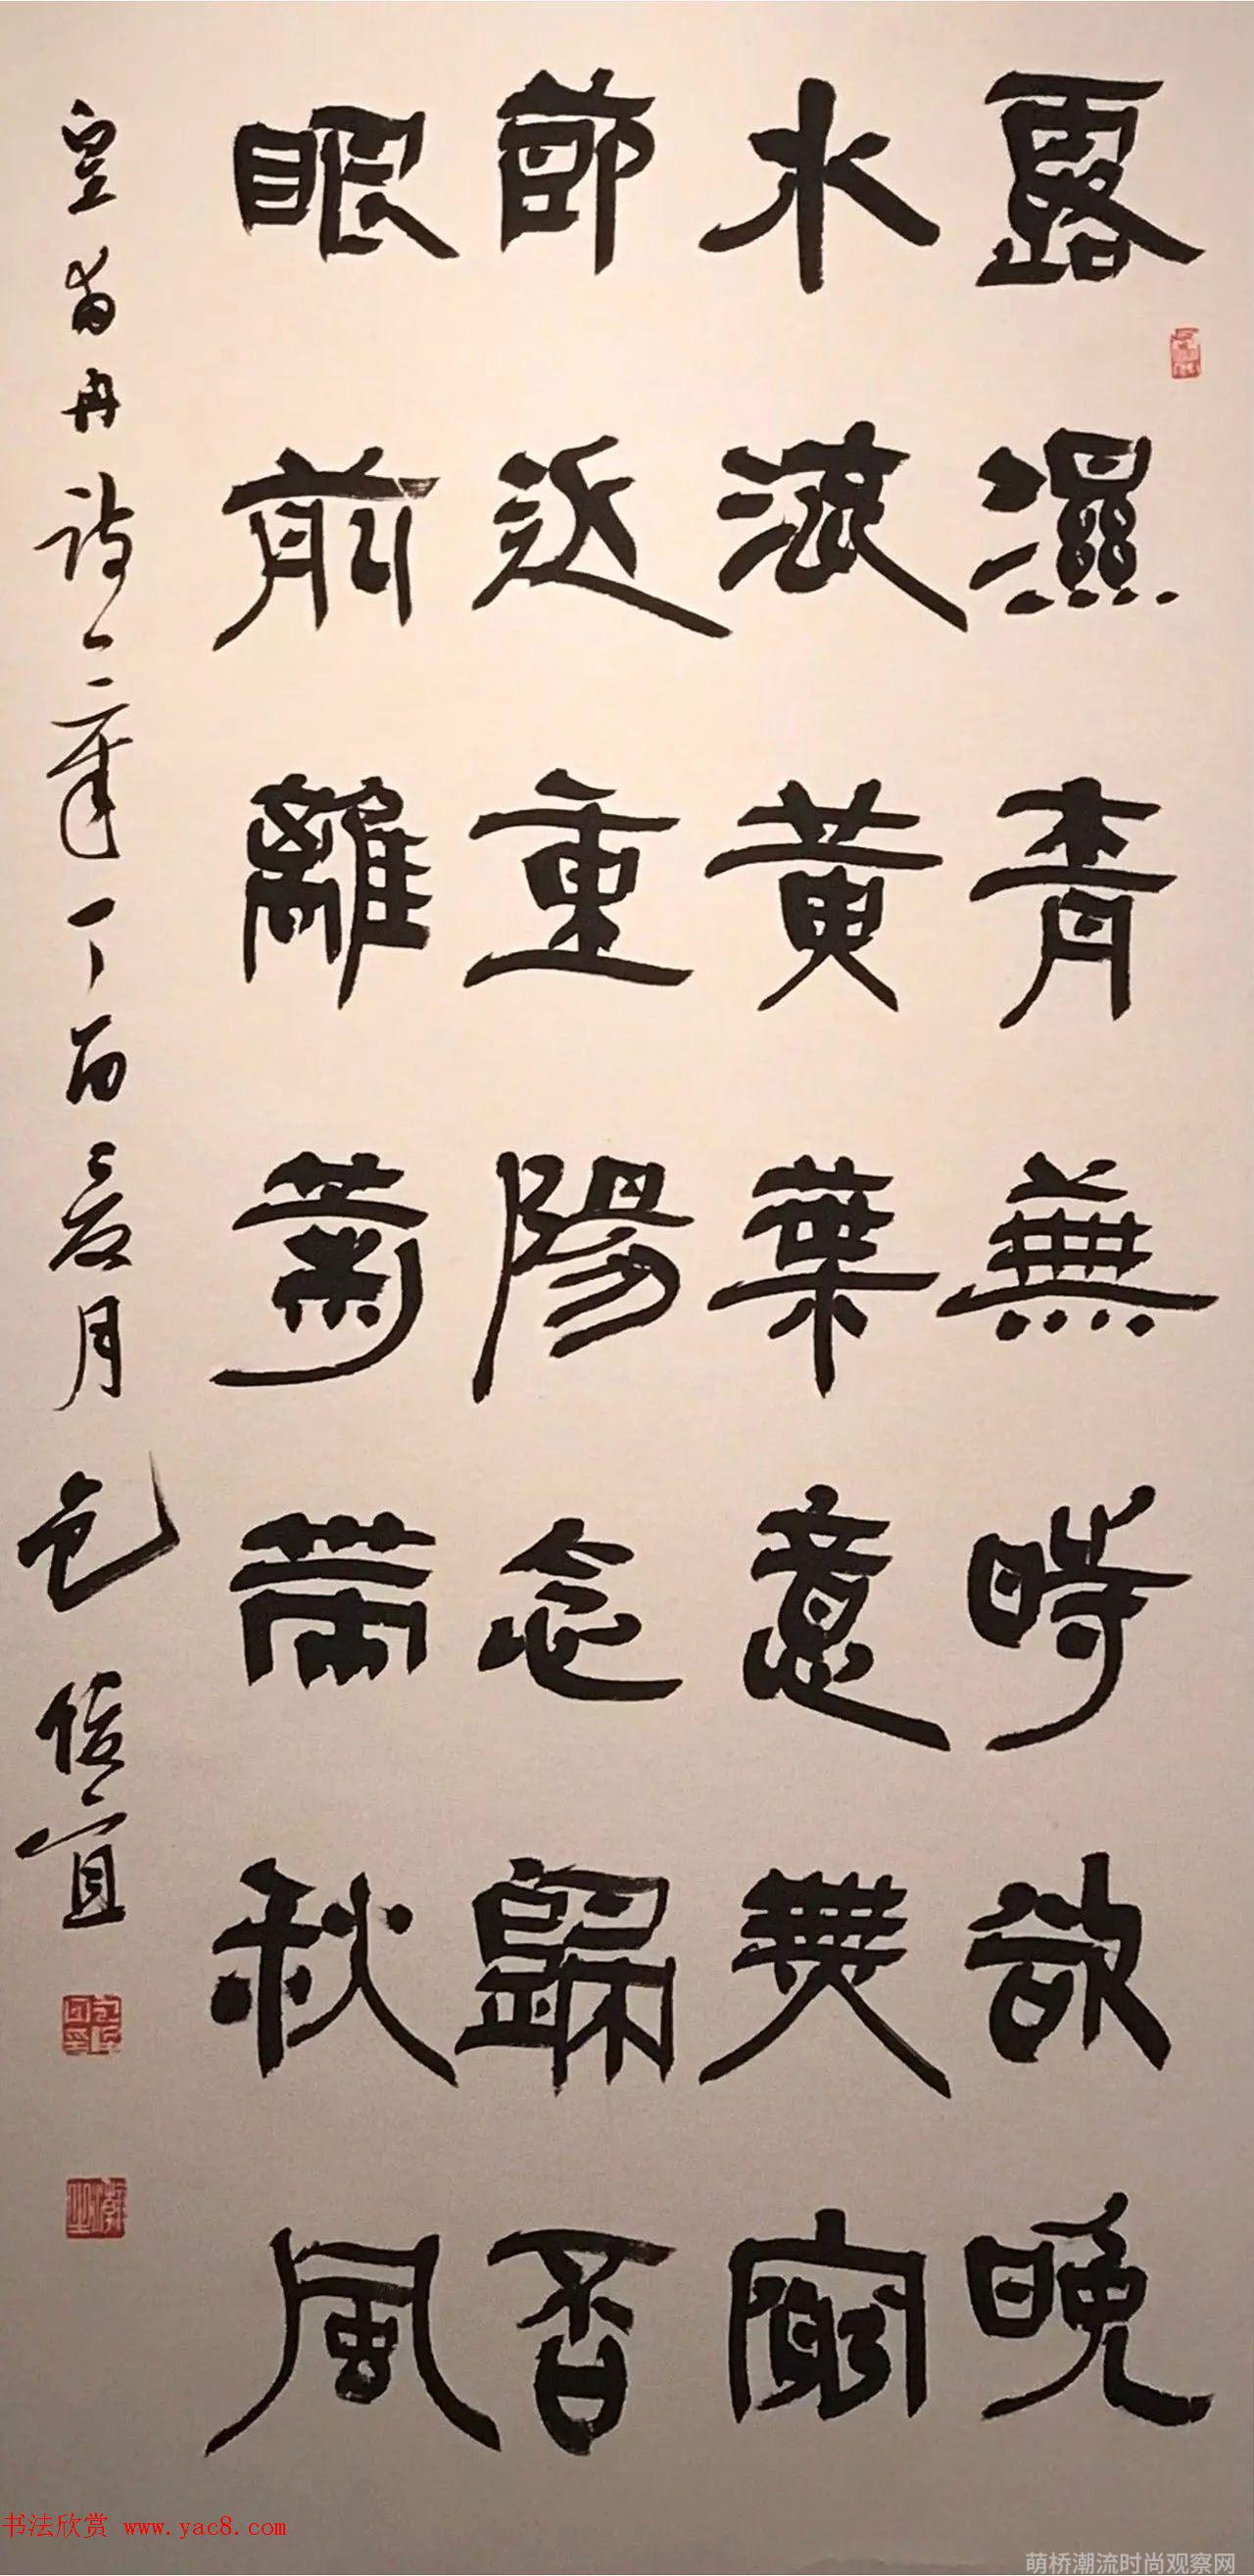 露濕青蕪時欲晚
水流黃葉意無窮
節近重陽念歸否
眼前籬菊帶秋風
皇甫冉詩一章丁酉夏月包俊宜
书法欣赏 www.yac8.com
萌桥潮流时尚观察网